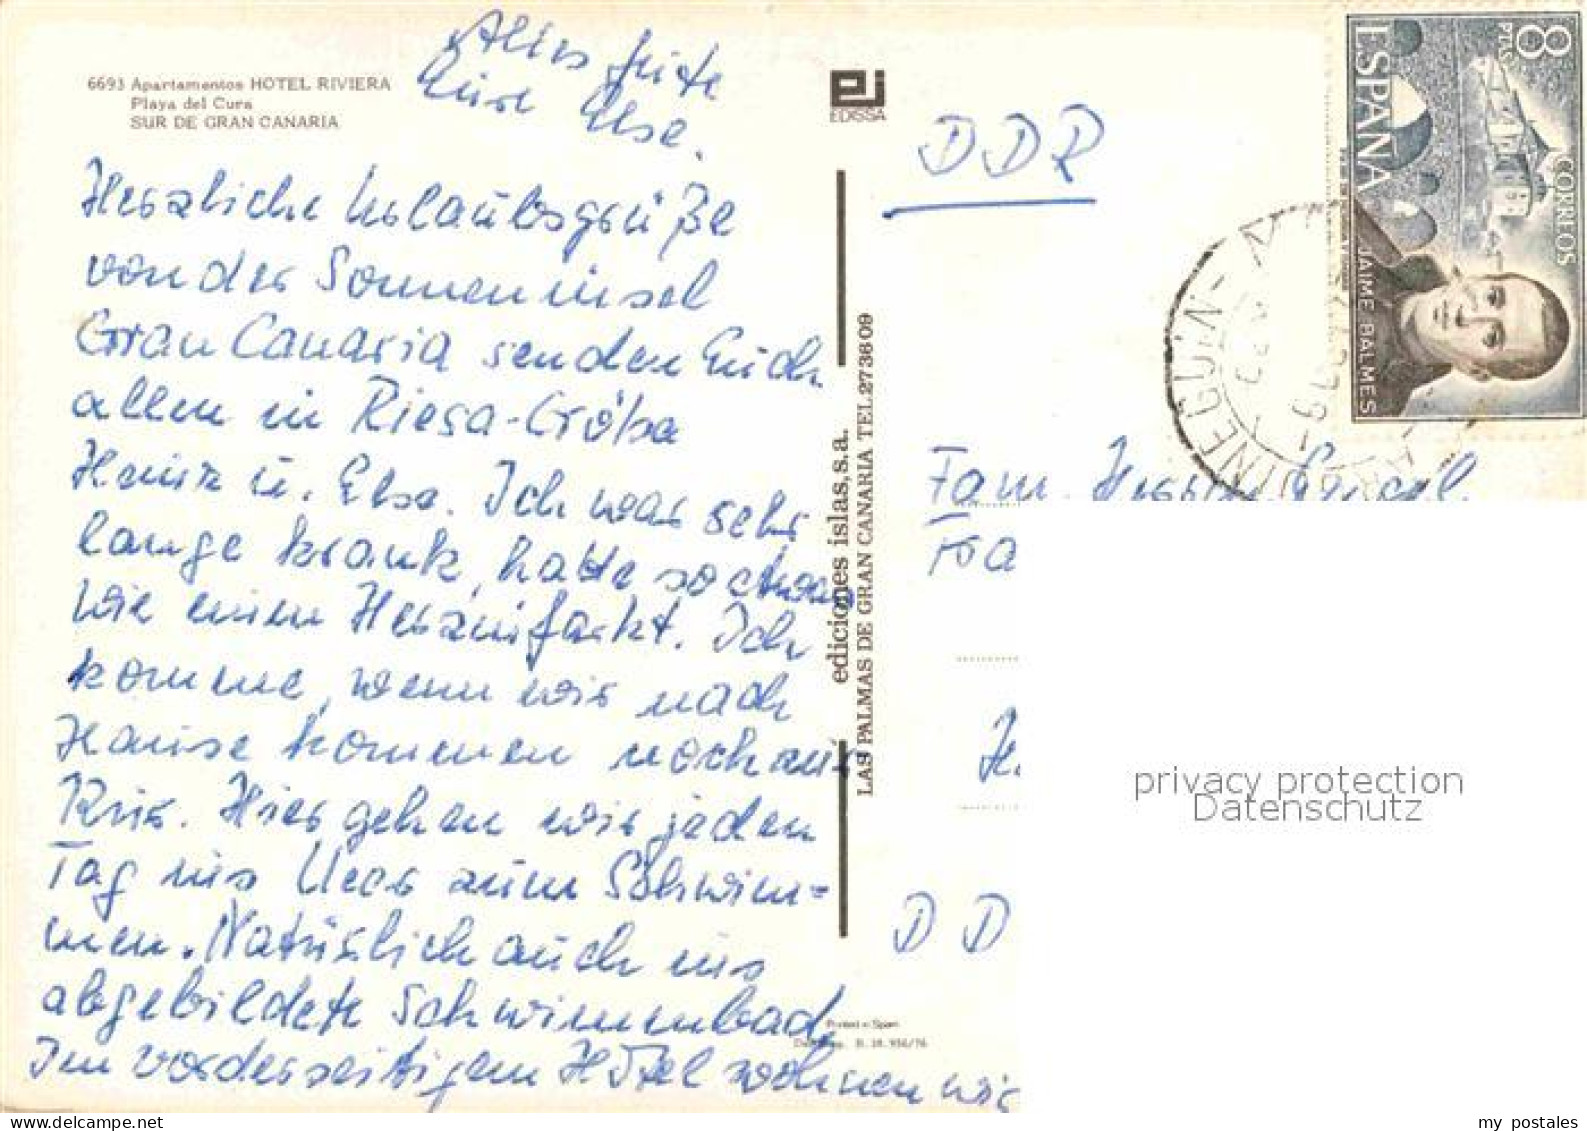 Alles Gute
Eure Else.
6693 Apartamentos HOTEL RIVIERA
Playa del Cura
SUR DE GRAN CANARIA
Herzliche Urlaubsgrüße
von der Sonneninsel
Gran Canaria senden Euch
allen in Riesa-Gröba
Heinz u. Else. Ich war sehr
lange krank, hatte so etwas
wie einen Herzinfarkt. Ich
komme, wenn wir nach
Hause kommen noch zur
Kur. Hier gehen wir jeden
Tag ins Meer zum Schwim=
men. Natürlich auch ins
abgebildete Schwimmbad
Im vorderseitigem Hotel wohnen wir
EDISSA
ediciones islas, s.a.
LAS PALMAS DE GRAN CANARIA TEL. 27 36 09
Printed in Spain
DDR
8 PTAS
ESPAÑA
CORREOS
JAIME BALMES
Fam.
DD
privacy protection
Datenschutz
my postales